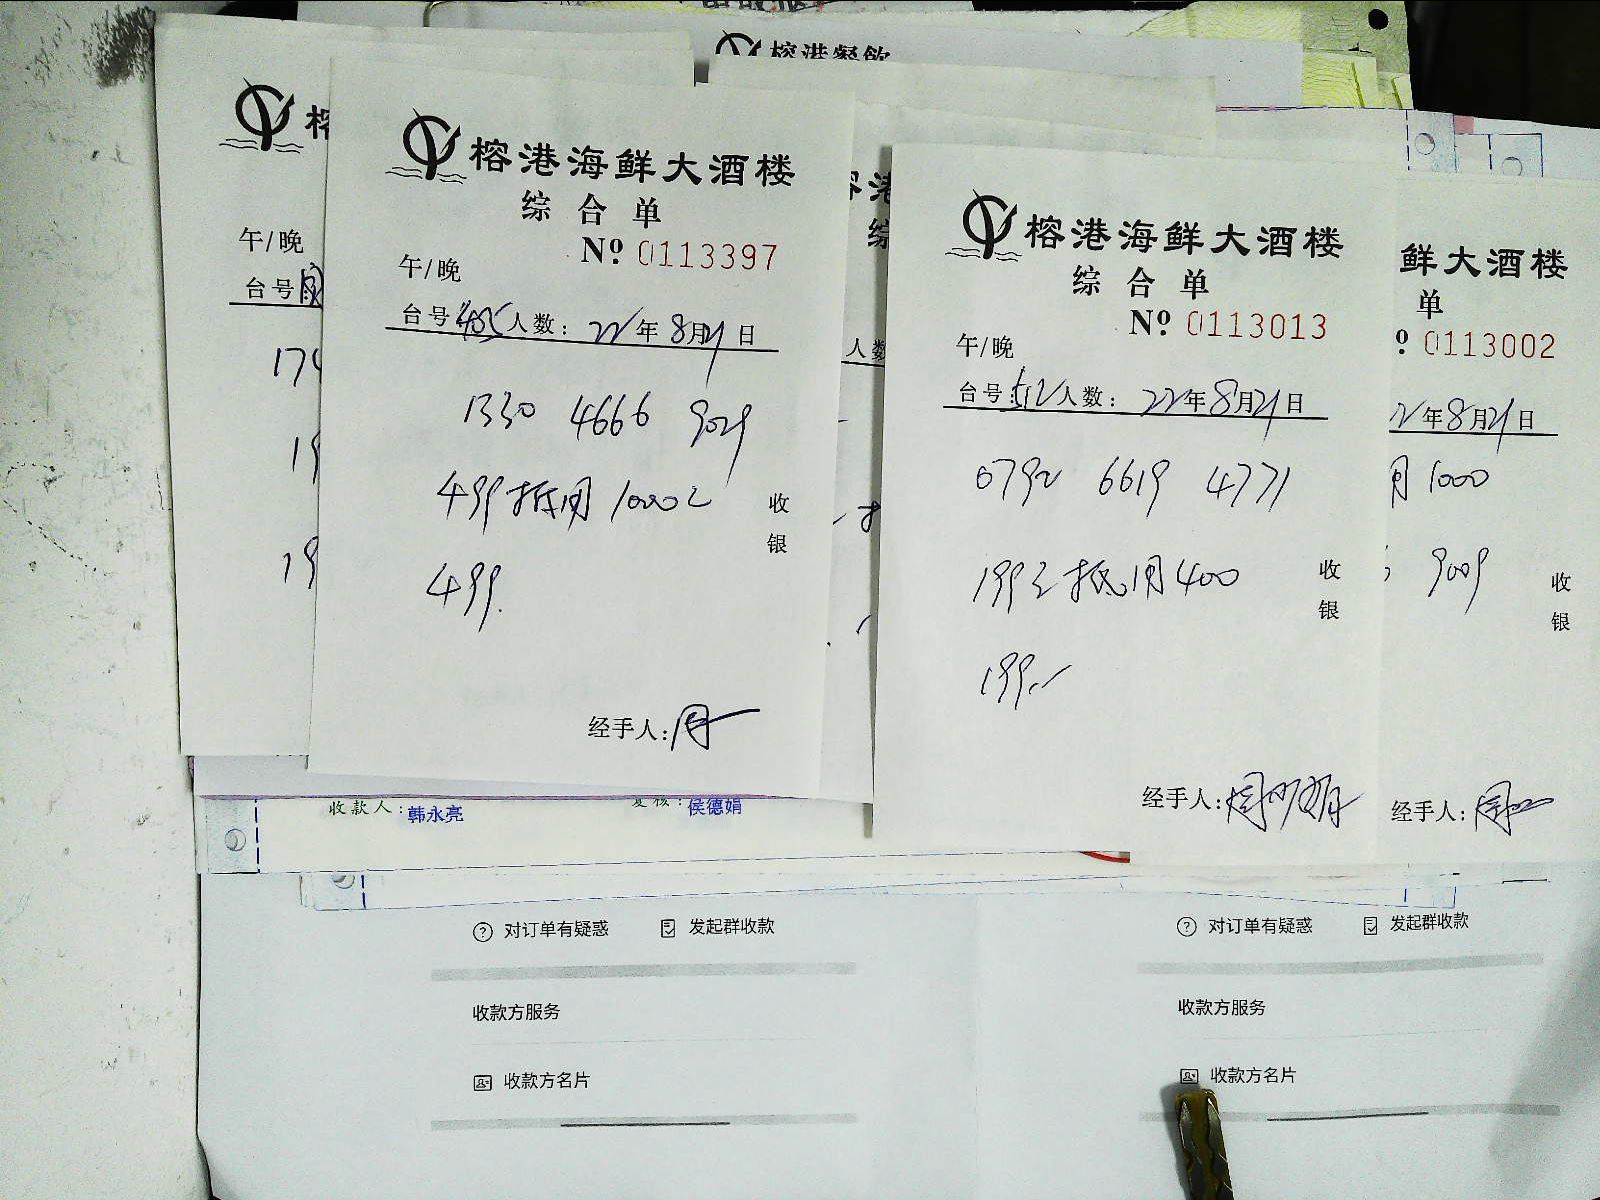 榕港餐飲
午/晚
台号
榕港海鲜大酒楼
综合单
Nº 0113397
午/晚
台号 485 人数: 22年8月21日
1330 4666 9029
499抵用1000元
499.
收
银
经手人:周
人数
榕港海鲜大酒楼
综合单
Nº 0113013
午/晚
台号:512人数: 22年8月21日
0792 6619 4771
199元抵用400
199.
收
银
经手人:
鲜大酒楼
单
º 0113002
年8月21日
用1000
9009
收
银
经手人:
收款人:韩永亮
复核:侯德娟
对订单有疑惑 发起群收款
收款方服务
收款方名片
对订单有疑惑 发起群收款
收款方服务
收款方名片